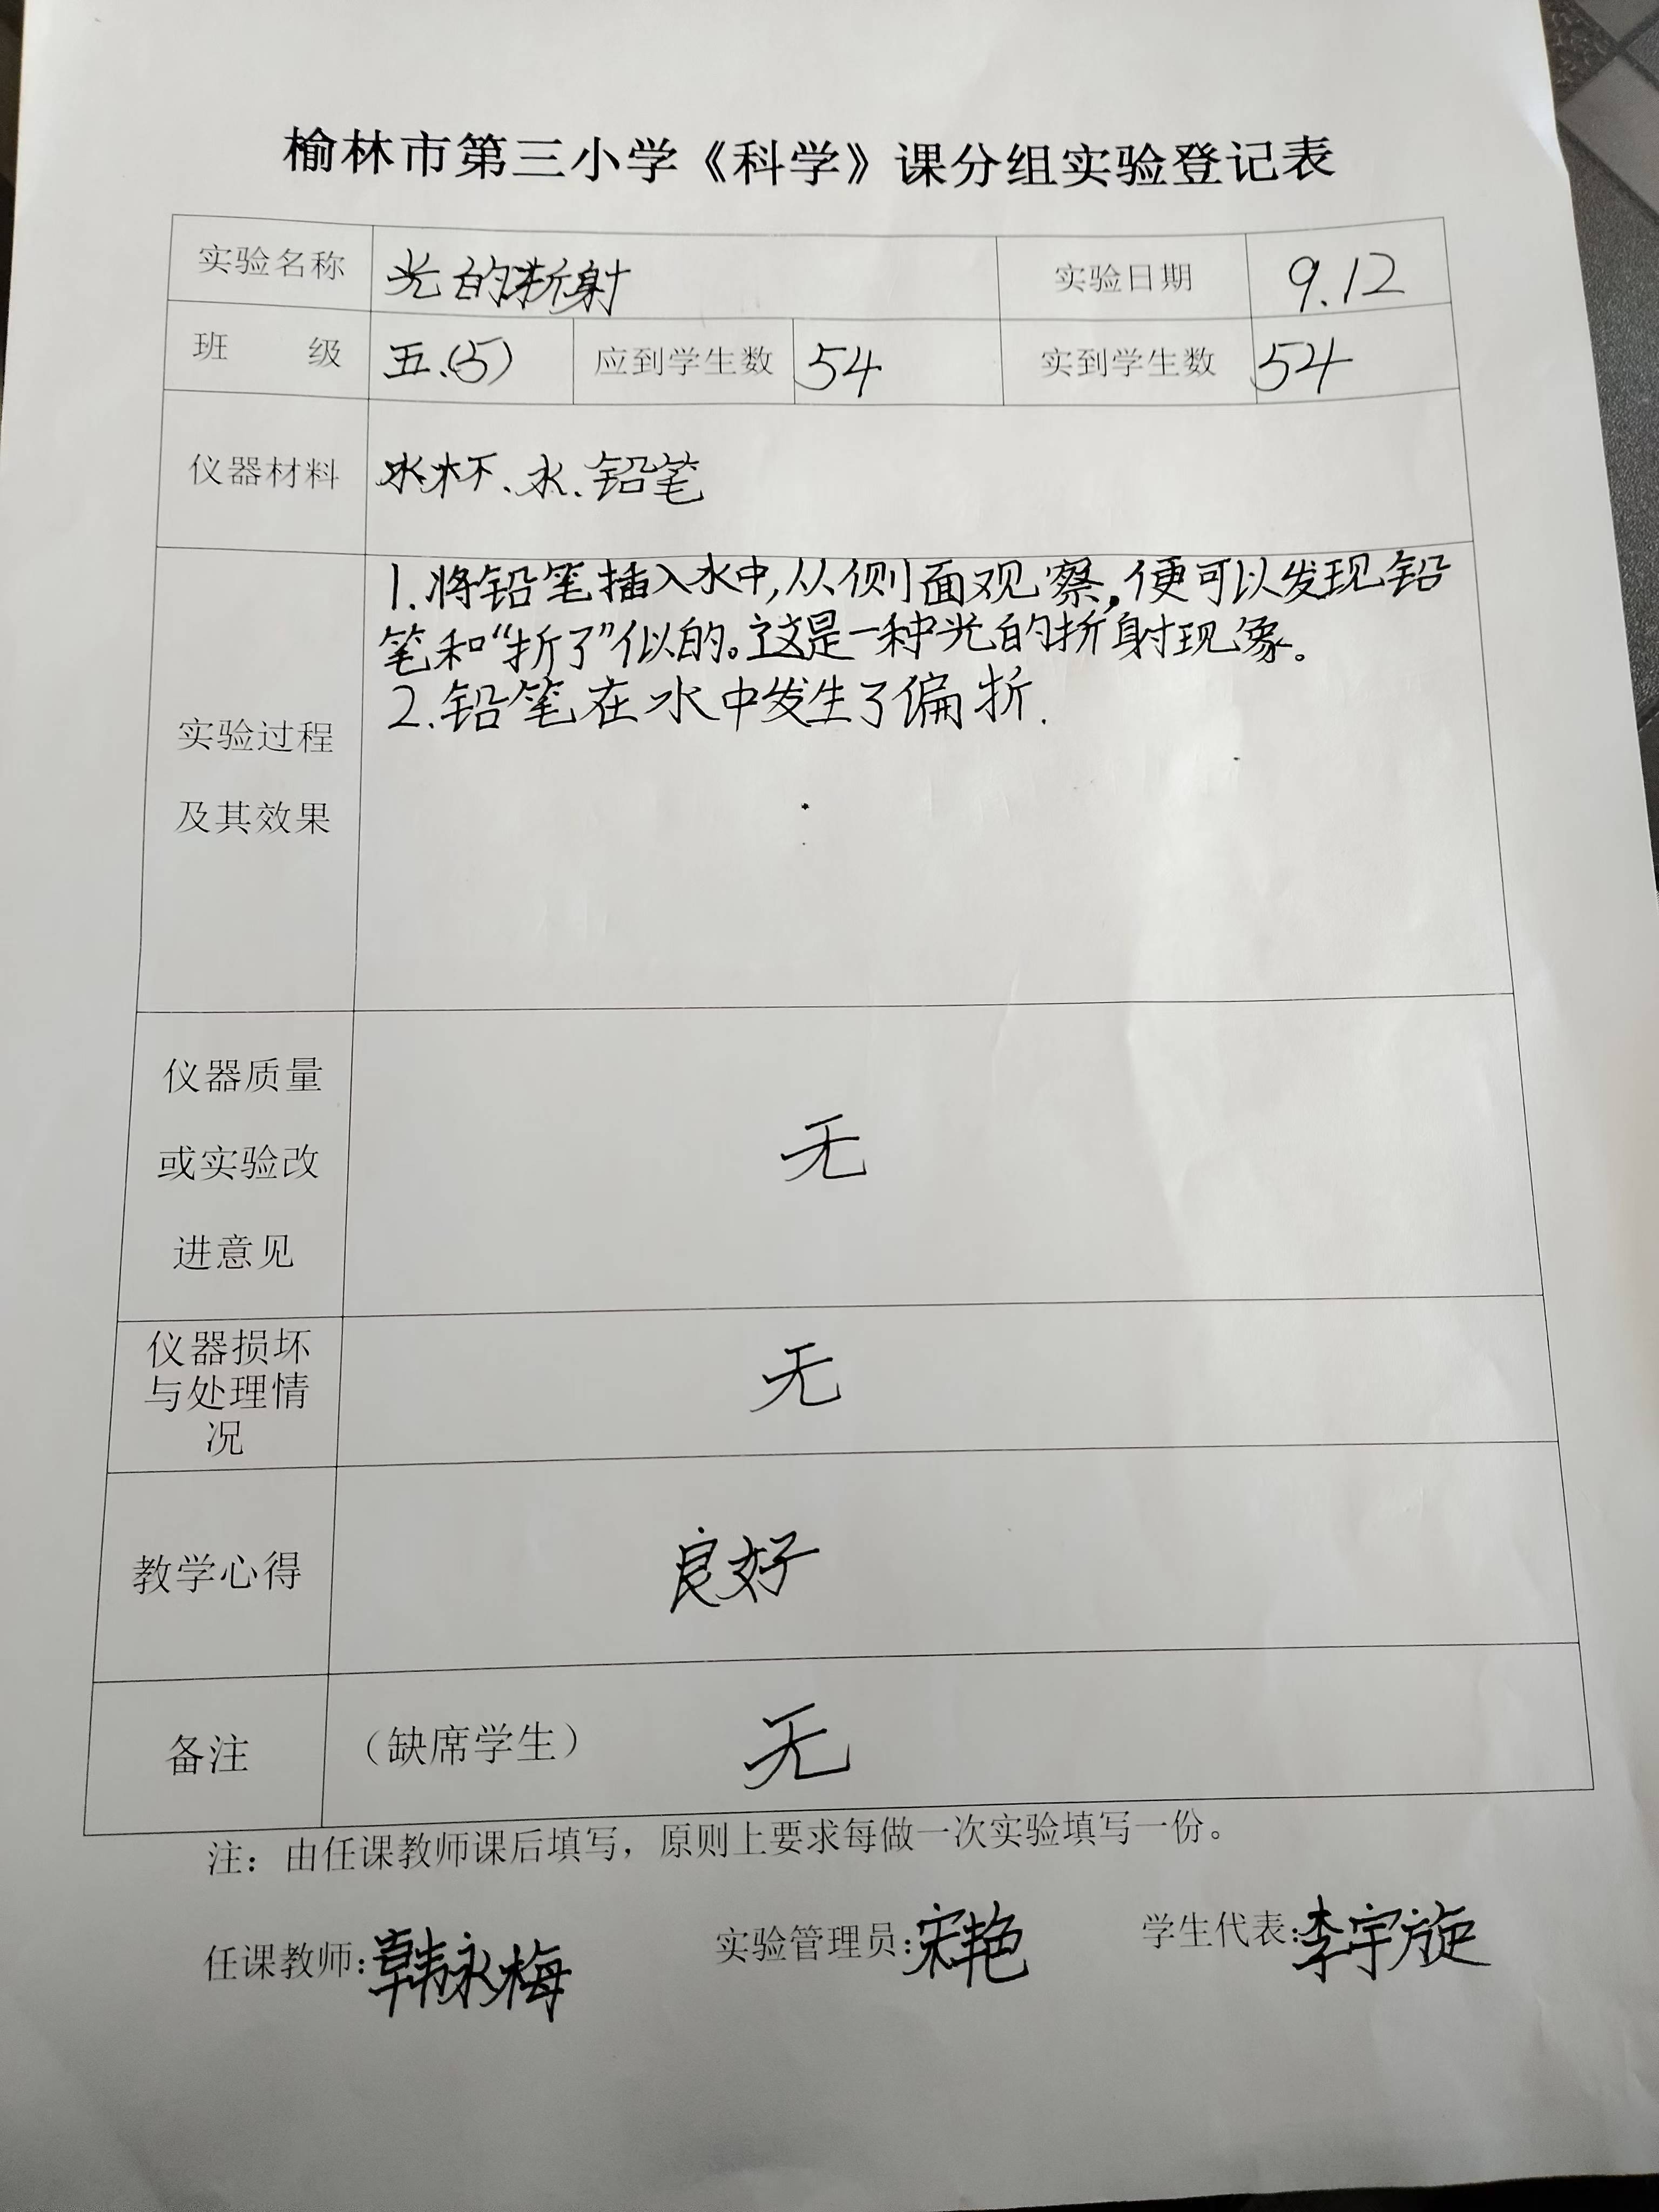 榆林市第三小学《科学》课分组实验登记表
实验名称 光的折射 实验日期 9.12
班 级 五.(5) 应到学生数 54 实到学生数 54
仪器材料 水杯、水、铅笔
1.将铅笔插入水中,从侧面观察,便可以发现铅
笔和“折了”似的。这是一种光的折射现象。
2.铅笔在水中发生了偏折.
实验过程
及其效果
仪器质量
或实验改
进意见
无
仪器损坏
与处理情
况
无
教学心得 良好
备注 （缺席学生） 无
注：由任课教师课后填写，原则上要求每做一次实验填写一份。
任课教师:韩永梅 实验管理员:宋艳 学生代表:李宇旋